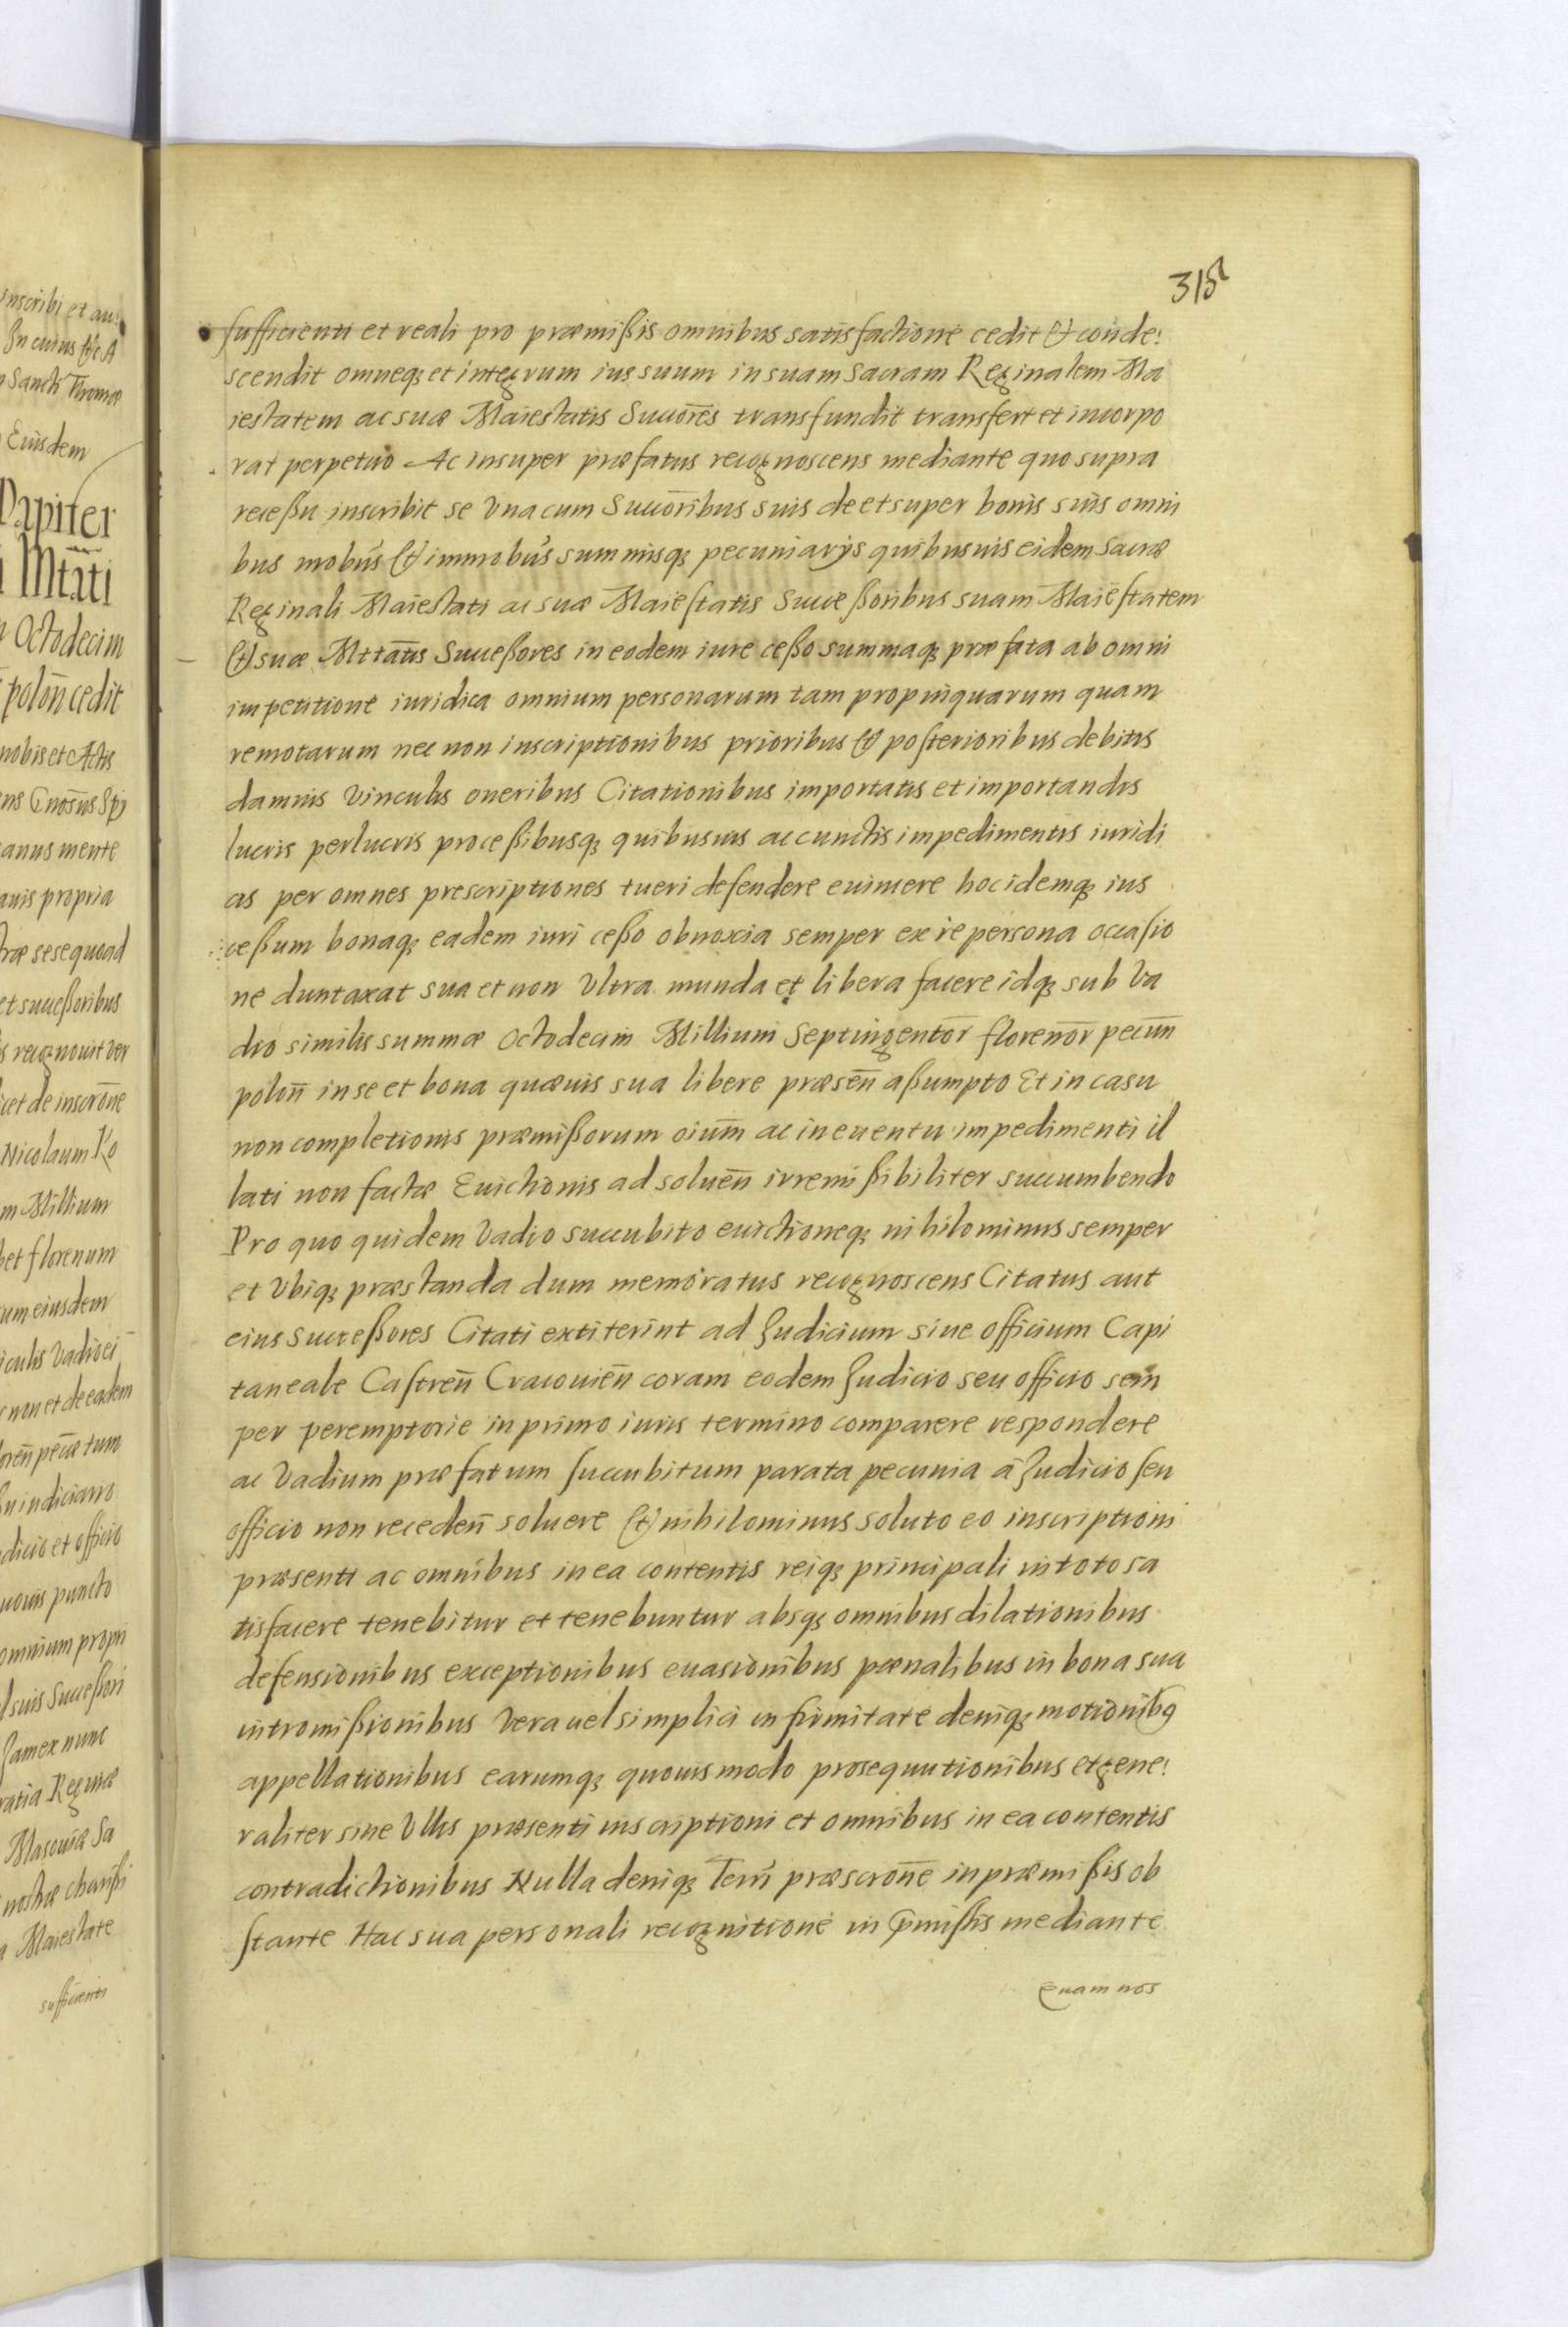 315
inscribi et au:
In cuius &c A
Sancti Thomæ
Eiusdem
Papiter
Mtati
Octodecim
polon̄ cedit
nobis et Actis
anus mente
propria
træ sese quoad
et successoribus
recognouit ver
et de inscrōne
Nicolaum Ko
m Millium
et florenum
um eiusdem
non et de eadem
In iudiciario
dicio et officio
uouis puncto
omnium propri
suis Successori
Iam ex nunc
ratia Reginæ
Masouiæ Sa
nostræ charissi
Maiestate
sufficienti
sufficienti et reali pro præmißis omnibus satisfactione cedit & conde:
scendit omneq; et integrum ius suum in suam Sacram Reginalem Ma
iestatem ac suæ Maiestatis Succōres transfundit transfert et incorpo
rat perpetuo Ac insuper præfatus recognoscens mediante quo supra
receßu inscribit se Vna cum Succōribus suis de et super bonis suis omni
bus mobūs & immobūs summisq; pecuniarijs quibusuis eidem Sacræ
Reginali Maiestati ac suæ Maiestatis Succeßoribus suam Maiestatem
& suæ Mttātis Succeßores in eodem iure ceßo summaq; præfata ab omni
impetitione iuridica omnium personarum tam propinquarum quam
remotarum nec non inscriptionibus prioribus & posterioribus debitis
damnis Vinculis oneribus Citationibus importatis et importandis
lucris perlucris proceßibusq; quibusuis ac cunctis impedimentis iuridi
cis per omnes prescriptiones tueri defendere euincere hoc idemq; ius
ceßum bonaq; eadem iuri ceßo obnoxia semper ex re persona occasio
ne duntaxat sua et non Vltra munda et libera facere idq; sub Va
dio similis summæ Octodecim Millium Septingentor̄ florenor̄ pecun̄
polon̄ in se et bona quæuis sua libere præsen̄ aßumpto Et in casu
non completionis præmißorum oium̄ ac in euentu impedimenti il
lati non factæ Euictionis ad soluen̄ irremißibiliter succumbendo
Pro quo quidem Vadio succubito euictioneq; nihilominus semper
et Vbiq; præstanda dum memoratus recognoscens Citatus aut
eius Succeßores Citati extiterint ad Iudicium siue officium Capi
taneale Castren̄ Cracouien̄ coram eodem Iudicio seu officio sem
per peremptorie in primo iuris termino comparere respondere
ac Vadium præfatum succubitum parata pecunia à Iudicio seu
officio non receden̄ soluere & nihilominus soluto eo inscriptioni
præsenti ac omnibus in ea contentis reiq; principali in toto sa
tisfacere tenebitur et tenebuntur absq; omnibus dilationibus
defensionibus exceptionibus euasionibus pœnalibus in bona sua
intromißionibus Vera uel simplici infirmitate deniq; motionibꝰ
appellationibus earumq; quouismodo prosequutionibus et gene:
raliter sine Vllis præsenti inscriptioni et omnibus in ea contentis
contradictionibus Nulla deniq; Terr̄ præscrōne in præmißis ob
stante Hac sua personali recognitione in p̄mißis mediante
Quam nos